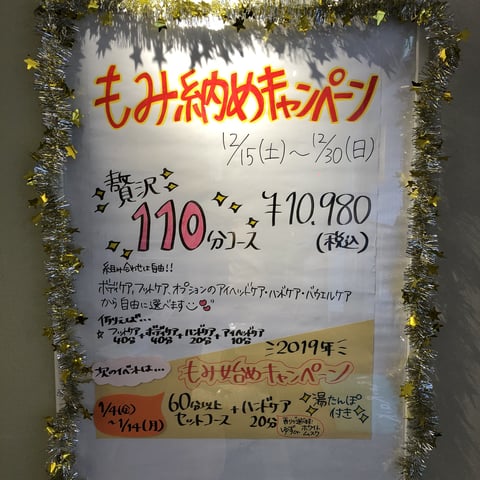 もみ納めキャンペーン
12/15(土)～12/30(日)
贅沢
110分コース
¥10.980
(税込)
組み合わせは自由!!
ボディケア、フットケア、オプションのアイヘッドケア・ハンドケア・パウエルケア
から自由に選べます
例えば…
☆フットケア+ボディケア+ハンドケア+アイヘッドケア
40分 40分 20分 10分
2019年
次のイベントは…
もみ始めキャンペーン
1/4(金)
～1/14(月)
60分以上
セットコース
+ハンドケア
20分
湯たんぽ
付き
ゆず ホワイト
ムスク